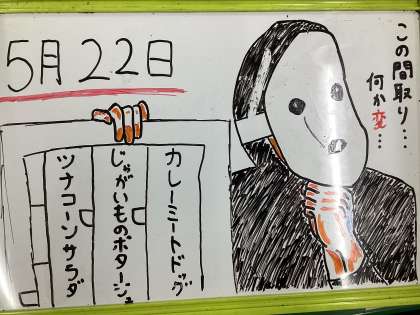 5月22日
この間取り…
何か変…
カレーミートドッグ
じゃがいものポタージュ
ツナコーンサラダ